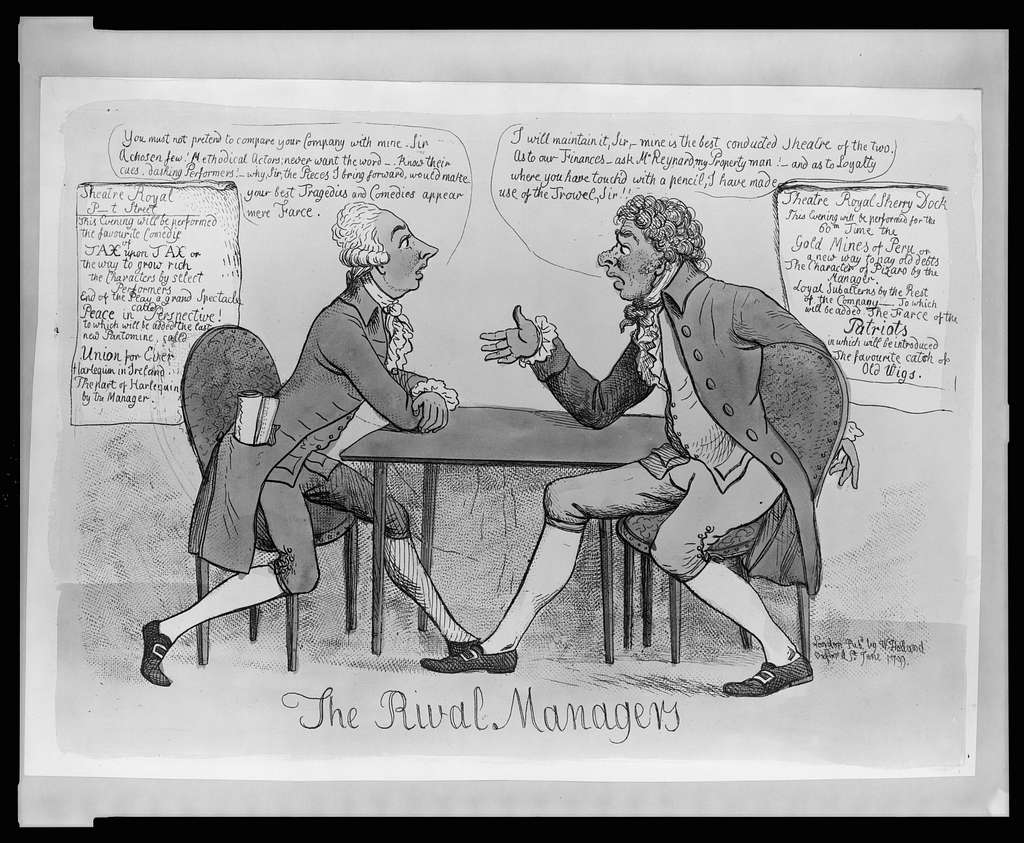 You must not pretend to compare your Company with mine - Sir
A chosen few! Methodical Actors, never want the word - Know their
cues. dashing Performers! - why, Sir, the Pieces I bring forward, would make
your best Tragedies and Comedies appear
mere Farce.
I will maintain it, Sir, - mine is the best conducted Theatre of the two.
As to our Finances - ask Mr Reynard my Property man! - and as to Loyalty
where you have touched with a pencil, I have made
use of the Trowel, Sir!!
Theatre Royal
P--t Street
This Evening will be performed
the favourite Comedy
of
TAX upon TAX or
the way to grow rich
the Characters by select
Performers
End of the Play a grand Spectacle
called
Peace in Perspective!
to which will be added the last
new Pantomine, call'd
Union for Ever
Harlequin in Ireland
The part of Harlequin
by the Manager.
Theatre Royal Sherry Dock
This Evening will be performed for the
60th Time the
Gold Mines of Peru or
a new way to pay old debts
The Character of Pizaro by the
Manager.
Loyal Subalterns by the Rest
of the Company - To which
will be added The Farce of the
Patriots
in which will be introduced
The favourite catch of
Old Wigs.
London Pubd by W Holland
Oxford St June 1799.
The Rival Managers